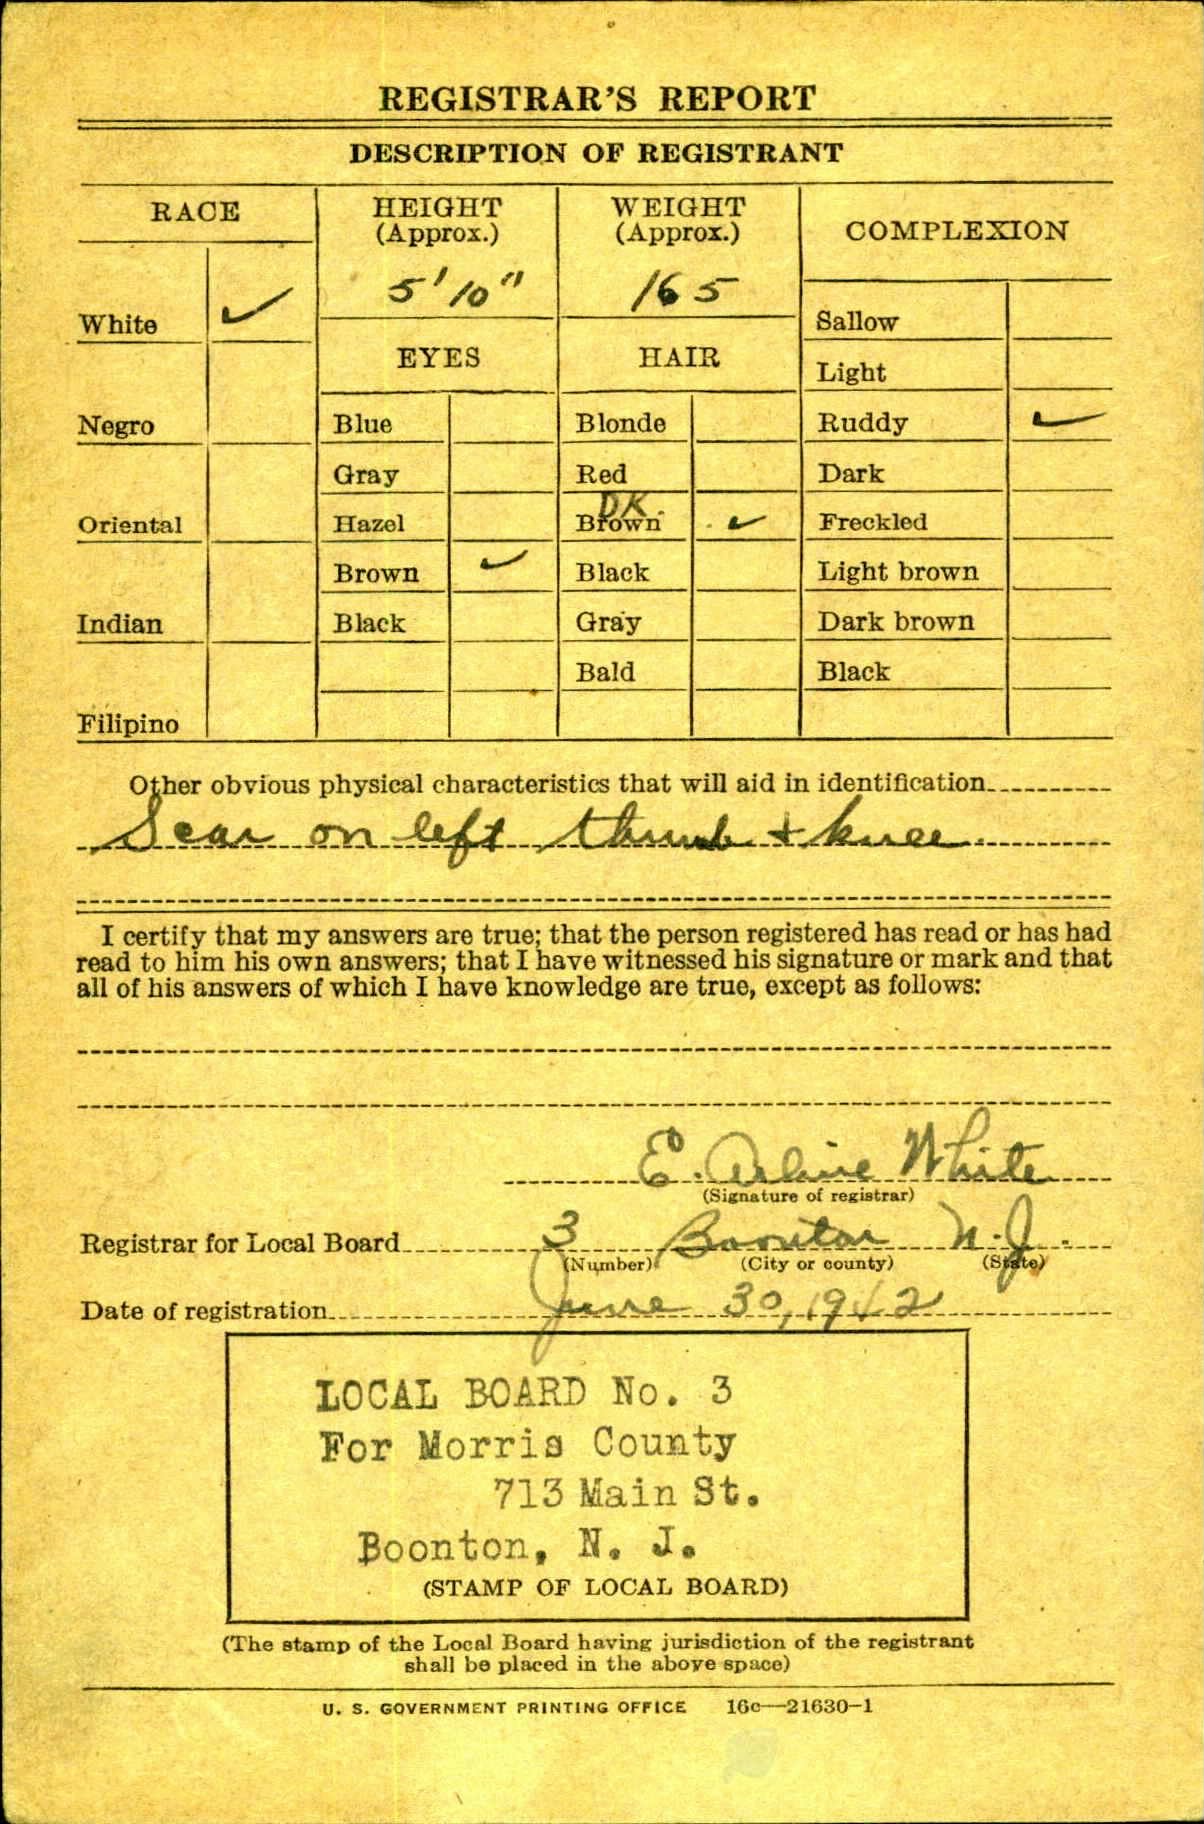 REGISTRAR'S REPORT
DESCRIPTION OF REGISTRANT
RACE
HEIGHT
(Approx.)
WEIGHT
(Approx.)
COMPLEXION
5' 10"
165
White ✓
Sallow
EYES
HAIR
Light
Negro
Blue
Blonde
Ruddy ✓
Gray
Red
Dark
Oriental
Hazel
DK.
Brown ✓
Freckled
Brown ✓
Black
Light brown
Indian
Black
Gray
Dark brown
Bald
Black
Filipino
Other obvious physical characteristics that will aid in identification
Scar on left thumb + knee.
I certify that my answers are true; that the person registered has read or has had
read to him his own answers; that I have witnessed his signature or mark and that
all of his answers of which I have knowledge are true, except as follows:
E. Arline White
(Signature of registrar)
Registrar for Local Board 3 Boonton N.J.
(Number) (City or county) (State)
Date of registration June 30, 1942
LOCAL BOARD No. 3
For Morris County
713 Main St.
Boonton, N. J.
(STAMP OF LOCAL BOARD)
(The stamp of the Local Board having jurisdiction of the registrant
shall be placed in the above space)
U. S. GOVERNMENT PRINTING OFFICE 16c—21630-1